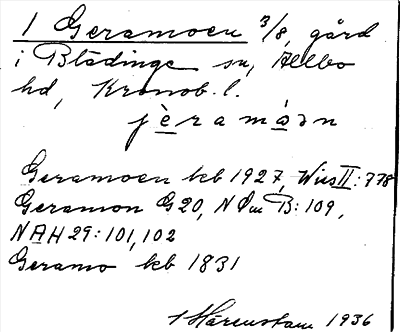 1 Geramoen 3/8, gård
i Blädinge sn, Allbo
hd, Kronob. l.
jèramá̀ən
Geramoen kcb 1927, Wies II: 778
Geramon G20, N Om B: 109,
NAH 29: 101, 102
Geramo kcb 1831
1 Härenstam 1936